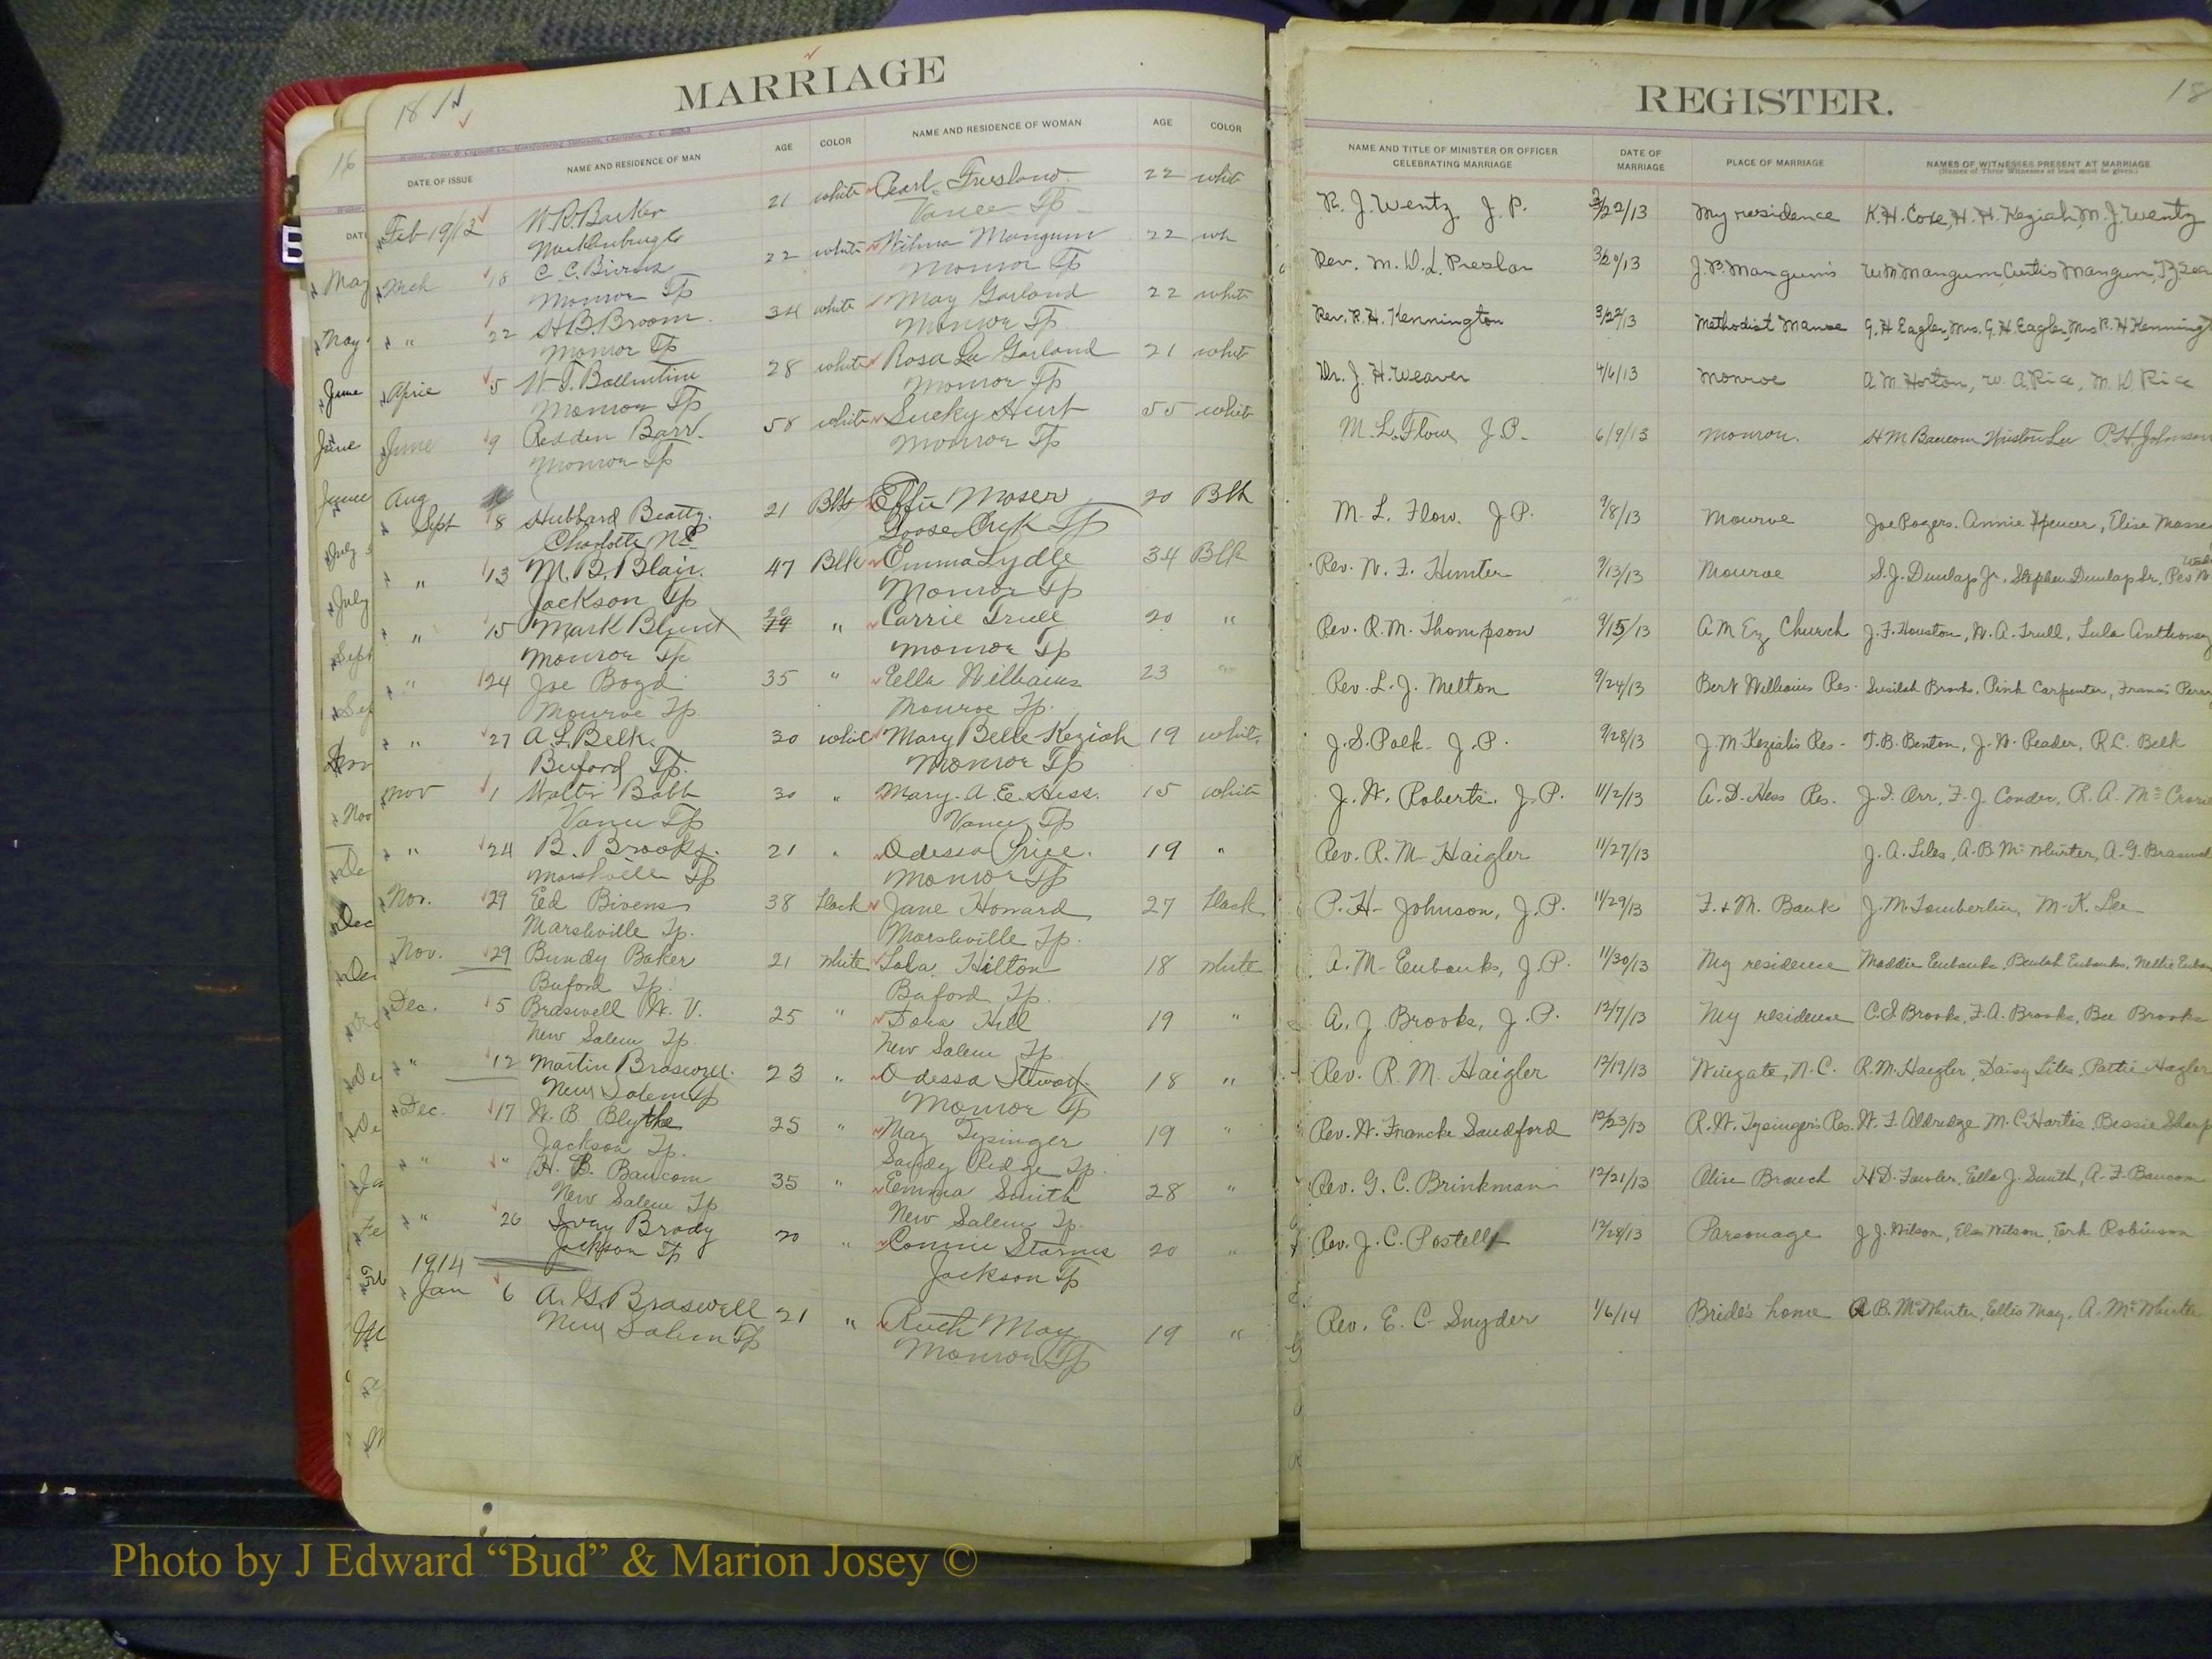 MARRIAGE
18
16
DATE OF ISSUE NAME AND RESIDENCE OF MAN AGE COLOR NAME AND RESIDENCE OF WOMAN AGE COLOR
Feb 19/12 W. R. Barker 21 white Pearl 22 white
Vance Tp
Mch 18 C. C. Bivens 22 white Wilma Mangum 22 wh
Monroe Tp Monroe Tp
" 22 H. B. Broom 34 white May Garland 22 white
Monroe Tp Monroe Tp
April 5 W. T. Ballentine 28 white Rosa Lee Garland 21 white
Monroe Tp Monroe Tp
June 9 Redden Barr 58 white Sucky Hunt 55 white
Monroe Tp Monroe Tp
Aug
Sept 8 Hubbard Beatty 21 Blk Effie Moser 20 Blk
Charlotte NC Goose Crk Tp
" 13 M. B. Blair 47 Blk Emma Lydle 34 Blk
Jackson Tp Monroe Tp
" 15 Mark Blount 20 " Carrie Trull 20 "
Monroe Tp Monroe Tp
" 24 Joe Boyd 35 " Ella Williams 23
Monroe Tp Monroe Tp.
" 27 A. L. Belk 30 white Mary Belle Keziah 19 white
Buford Tp. Monroe Tp
Nov 1 Walter Babb 30 " Mary. A. E. Hess. 15 white
Vance Tp Vance Tp
" 24 B. Brooks. 21 " Odessa Price. 19 "
Marshville Tp Monroe Tp
Nov. 29 Ed Bivens 38 black Jane Howard 27 black
Marshville Tp. Marshville Tp.
Nov. 29 Bundy Baker 21 white Lola Hilton 18 white
Buford Tp. Buford Tp.
Dec. 5 Braswell W. V. 25 " Dora Hill 19 "
New Salem Tp. New Salem Tp.
" 12 Martin Braswell 23 " Odessa 18 "
New Salem Tp Monroe Tp
Dec. 17 W. B. Blythe 25 " May Tysinger 19 "
Jackson Tp. Sandy Ridge Tp.
" " H. B. Baucom 35 " Emma Smith 28 "
New Salem Tp New Salem Tp.
" 26 Ivey Brady 20 " Connie Starnes 20 "
Jackson Tp Jackson Tp
1914
Jan 6 A. G. Braswell 21 " Ruth May 19 "
New Salem Tp Monroe Tp
REGISTER.
18
NAME AND TITLE OF MINISTER OR OFFICER CELEBRATING MARRIAGE DATE OF MARRIAGE PLACE OF MARRIAGE NAMES OF WITNESSES PRESENT AT MARRIAGE
(Names of Three Witnesses at least must be given.)
R. J. Wentz J. P. 3/22/13 My residence K. H. Core, H. H. Keziah, M. J. Wentz
Rev. M. D. L. Preslar 3/20/13 J. B. Mangum's W. M Mangum, Curtis Mangum
Rev. R. H. Kennington 3/22/13 Methodist Manse G. H Eagle, Mrs. G. H Eagle, Mrs R. H Kenning
Dr. J. H. Weaver 4/6/13 Monroe A M. Horton, W. A. Rice, M. D Rice
M. L. Flow J. P. 6/9/13 Monroe. H M Baucom Winston Lee P. H Johnson
M. L. Flow. J P. 9/8/13 Monroe Joe Rogers. Annie Spencer, Elise Masse
Rev. W. F. Hunter 9/13/13 Monroe S. J. Dunlap Jr, Stephen Dunlap Sr, Rev W
Rev. R. M. Thompson 9/15/13 A M Ez Church J. F. Houston, W. A. Trull, Lula Anthony
Rev. L. J. Melton 9/24/13 Bert Williams Res. Brooks, Pink Carpenter, Francis
J. S. Polk J. P. 9/28/13 J. M Keziah's Res - T. B. Benton, J. W. Reader, R L. Belk
J. W. Roberts. J. P. 11/2/13 A. D. Hess Res. J. I. Orr, F. J. Conder, R. A. Mc
Rev. R. M Haigler 11/27/13 J. A. Liles, A. B. McWhirter, A. G. Braswel
P. H. Johnson, J. P. 11/29/13 F. & M. Bank J. M. Tomberlin, M. K. Lee
A. M. Eubanks, J. P. 11/30/13 My residence Maddie Eubanks, Beulah Eubanks, Nellie Euban
A. J Brooks, J. P. 12/7/13 My residence C. S. Brooks, F. A. Brooks, Bee Brooks
Rev. R. M. Haigler 12/19/13 Wingate, N. C. R. M. Haigler, Daisy Liles, Pattie Hagler
Rev. W. Francke Sandford 12/23/13 R. W. Tysinger's Res. W. F. Aldredge M. C. Hartis, Bessie Sharp
Rev. G. C. Brinkman 12/21/13 Olive Branch H D. Fowler, Ella J. Smith, A. F. Baucom
Rev. J. C. Postell 12/28/13 Parsonage J J. Wilson, Ela Wilson, Robinson
Rev. E. C. Snyder 1/6/14 Bride's home A B. McWhirter, Ellis May, A. McWhirter
Photo by J Edward “Bud” & Marion Josey ©